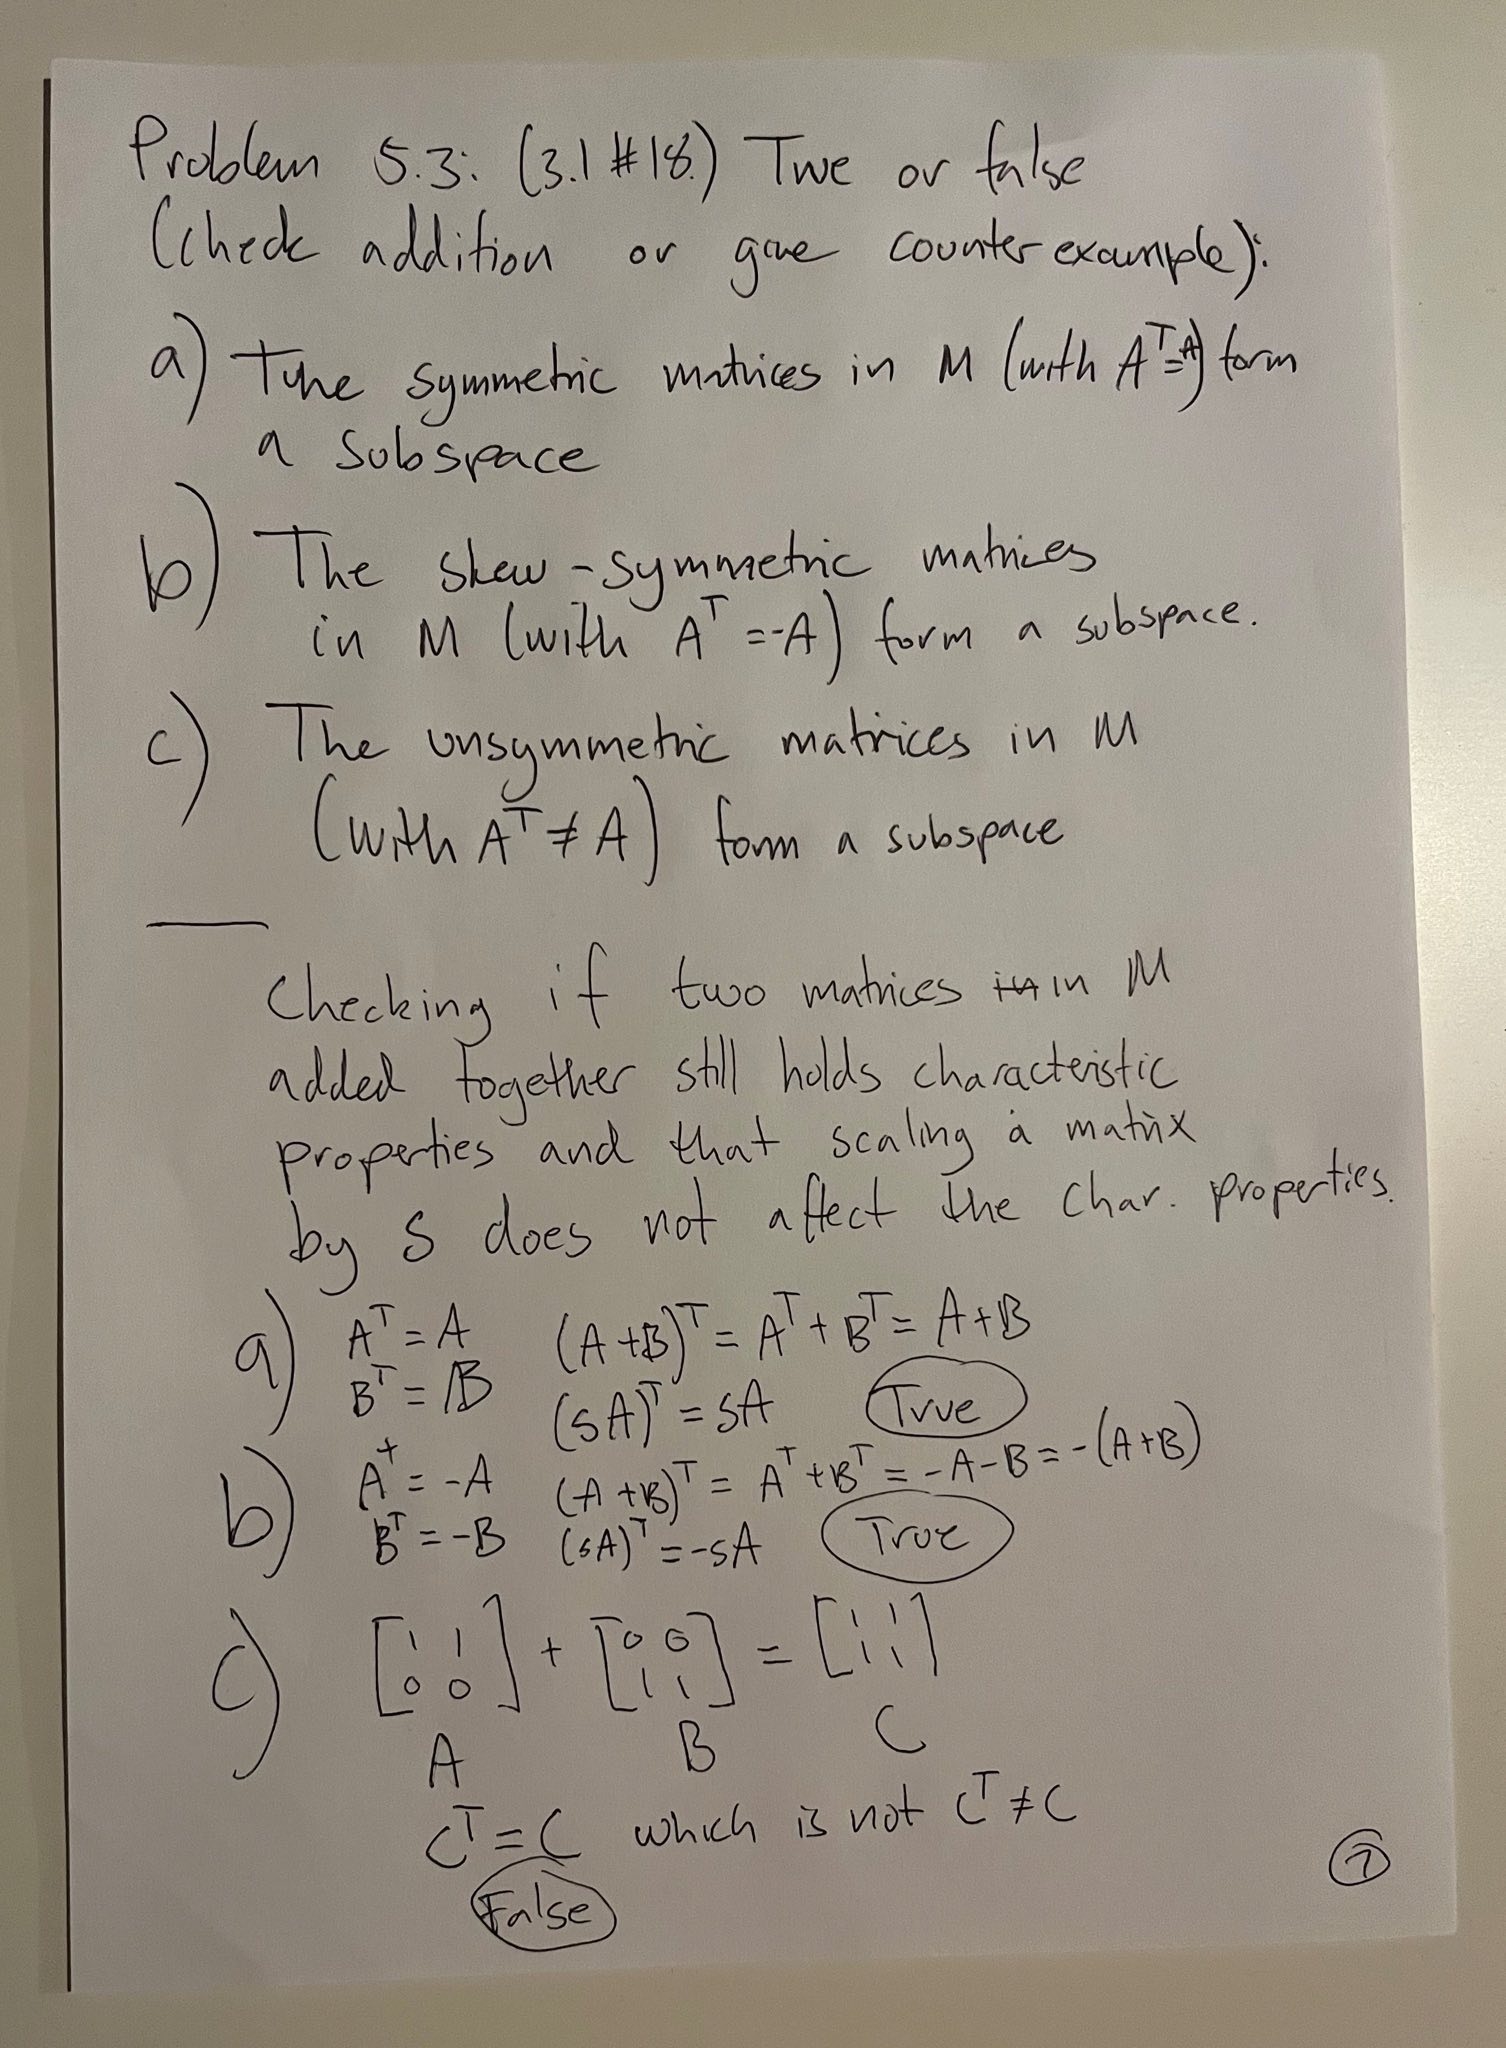 Problem 5.3: (3.1 #18.) True or false
(check addition or give counter example):
a) The symmetric matrices in M (with Aᵀ=A) form
a subspace
b) The skew-symmetric matrices
in M (with Aᵀ=-A) form a subspace.
c) The unsymmetric matrices in M
(with Aᵀ≠A) form a subspace
Checking if two matrices in in M
added together still holds characteristic
properties and that scaling a matrix
by s does not affect the char. properties.
a) Aᵀ=A (A+B)ᵀ=Aᵀ+Bᵀ=A+B
Bᵀ=B (sA)ᵀ=sA True
b) Aᵀ=-A (A+B)ᵀ=Aᵀ+Bᵀ=-A-B=-(A+B)
Bᵀ=-B (sA)ᵀ=-sA True
c) [1 1
0 0] + [0 0
1 1] = [1 1
1 1]
A B C
Cᵀ=C which is not Cᵀ≠C
False
7